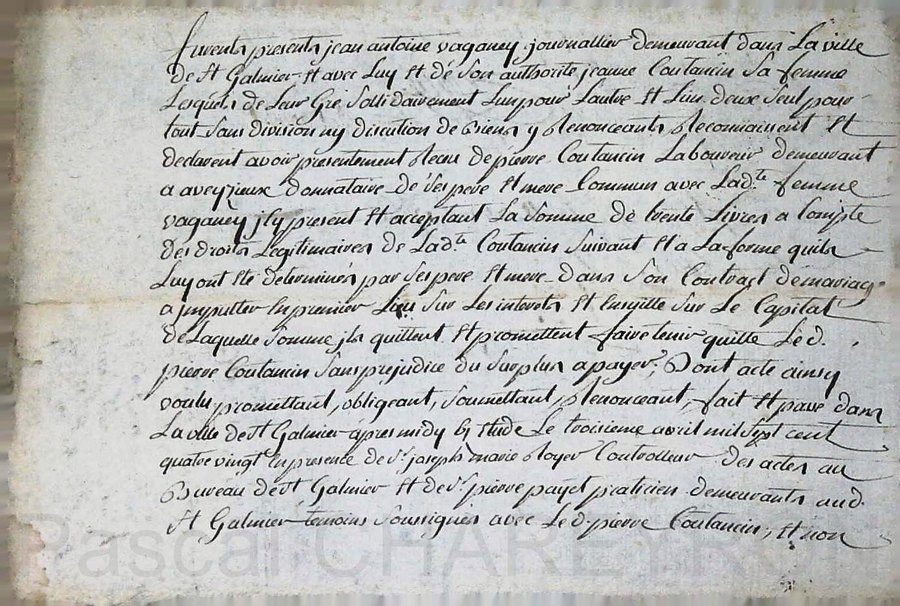 furents presents jean antoine vaganey journallier demeurant dans La ville
de St Galmier Et avec Luy Et de Son authorité jeanne Coutancin Sa femme
Lesquels de Leur Gré Sollidairement Lun pour Lautre Et Lun deux Seul pour
tout Sans division ny discution de Biens y Renonceants Reconnaissent Et
declarent avoir presentement Recus de pierre Coutancin Laboureur demeurant
a aveyzieux donnataire de Ses pere Et mere Commun avec Ladte femme
vaganey jcy present Et acceptant La Somme de trente Livres a Compte
des droits Legitimaires de Ladte Coutancin Suivant Et a La forme quils
Luy ont Eté determinés par Ses pere Et mere dans Son Contract de mariage
a jmputter En premier Lieu Sur Les interets Et Ensuitte Sur Le Capital
de Laquelle Somme jls quittent Et promettent faire tenir quitte Led.
pierre Coutancin Sans prejudice du Surplus a payer, Dont acte ainsy
voulu promettant, obligeant, Soumettant, Renonceant, fait Et passé dans
La ville de St Galmier apres midy Etude Le troisieme avril mil Sept cent
quatre vingt En presence de Sr joseph marie Royer Controlleur des actes au
Bureau de St Galmier Et de Sr pierre payet praticien demeurants aud.
St Galmier temoins Soussignés avec Led. pierre Coutancin, Et non
Pascal CHAREYRON